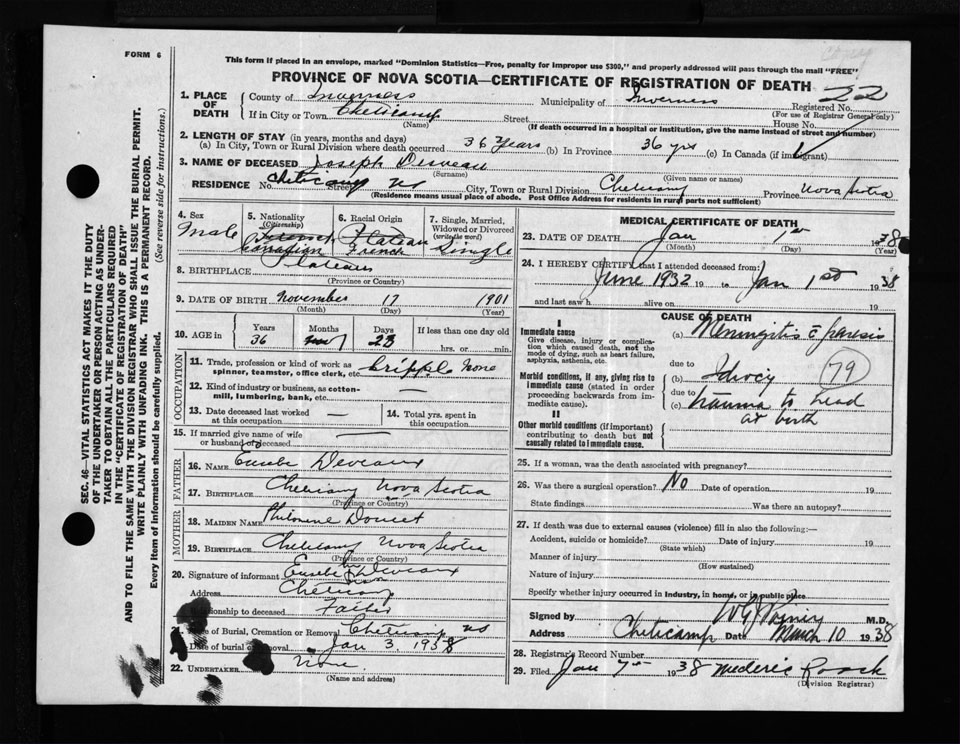 FORM 6
This form if placed in an envelope, marked "Dominion Statistics—Free, penalty for improper use $300," and properly addressed will pass through the mail "FREE"
PROVINCE OF NOVA SCOTIA—CERTIFICATE OF REGISTRATION OF DEATH
SEC. 46—VITAL STATISTICS ACT MAKES IT THE DUTY
OF THE UNDERTAKER OR PERSON ACTING AS UNDER-
TAKER TO OBTAIN ALL THE PARTICULARS REQUIRED
IN THE "CERTIFICATE OF REGISTRATION OF DEATH"
AND TO FILE THE SAME WITH THE DIVISION REGISTRAR WHO SHALL ISSUE THE BURIAL PERMIT.
WRITE PLAINLY WITH UNFADING INK. THIS IS A PERMANENT RECORD.
Every item of information should be carefully supplied.
(See reverse side for instructions.)
1. PLACE OF DEATH
County of Inverness Municipality of Inverness Registered No. 22
(For use of Registrar General only)
If in City or Town Cheticamp Street House No.
(Name) (If death occurred in a hospital or institution, give the name instead of street and number)
2. LENGTH OF STAY (in years, months and days)
(a) In City, Town or Rural Division where death occurred 36 Years (b) In Province 36 yrs (c) In Canada (if immigrant)
3. NAME OF DECEASED Joseph Deveau
(Surname) (Given name or names)
RESIDENCE No. Cheticamp Street NS City, Town or Rural Division Cheticamp Province Nova Scotia
(Residence means usual place of abode. Post Office Address for residents in rural parts not sufficient)
4. Sex Male
5. Nationality (Citizenship) French Canadian
6. Racial Origin Plateau French
7. Single, Married, Widowed or Divorced (write the word) Single
8. BIRTHPLACE Plateau
(Province or Country)
9. DATE OF BIRTH November 17 1901
(Month) (Day) (Year)
10. AGE in Years Months Days If less than one day old
36 23 hrs. or min.
OCCUPATION
11. Trade, profession or kind of work as spinner, teamster, office clerk, etc. Cripple None
12. Kind of industry or business, as cotton-mill, lumbering, bank, etc. —
13. Date deceased last worked at this occupation —
14. Total yrs. spent in this occupation
15. If married give name of wife or husband of deceased —
FATHER
16. NAME Eusebe Deveaux
17. BIRTHPLACE Cheticamp Nova Scotia
(Province or Country)
MOTHER
18. MAIDEN NAME Philomene Doucet
19. BIRTHPLACE Cheticamp Nova Scotia
(Province or Country)
20. Signature of informant Eusebe Deveaux
Address Cheticamp
Relationship to deceased Father
21. Place of Burial, Cremation or Removal Cheticamp NS
Date of burial or removal Jan 3, 1938
22. UNDERTAKER None
(Name and address)
MEDICAL CERTIFICATE OF DEATH
23. DATE OF DEATH Jan 1st 1938
(Month) (Day) (Year)
24. I HEREBY CERTIFY that I attended deceased from:
June 1932 19 to Jan 1st 1938
and last saw h alive on 19
CAUSE OF DEATH
I
Immediate cause
Give disease, injury or complication which caused death, not the mode of dying, such as heart failure, asphyxia, asthenia, etc.
(a) Meningitis c̄ paresis
due to
Morbid conditions, if any, giving rise to immediate cause (stated in order proceeding backwards from immediate cause).
(b) Idiocy 79
due to
(c) trauma to head
at birth
II
Other morbid conditions (if important) contributing to death but not causally related to immediate cause.
25. If a woman, was the death associated with pregnancy?
26. Was there a surgical operation? No Date of operation 19
State findings Was there an autopsy?
27. If death was due to external causes (violence) fill in also the following:—
Accident, suicide or homicide? Date of injury 19
(State which)
Manner of injury
(How sustained)
Nature of injury
Specify whether injury occurred in Industry, in home, or in public place
Signed by M.D.
Address Cheticamp Date March 10 1938
28. Registrar's Record No.
29. Filed Jan 7th 1938 Mederic Roach
(Division Registrar)